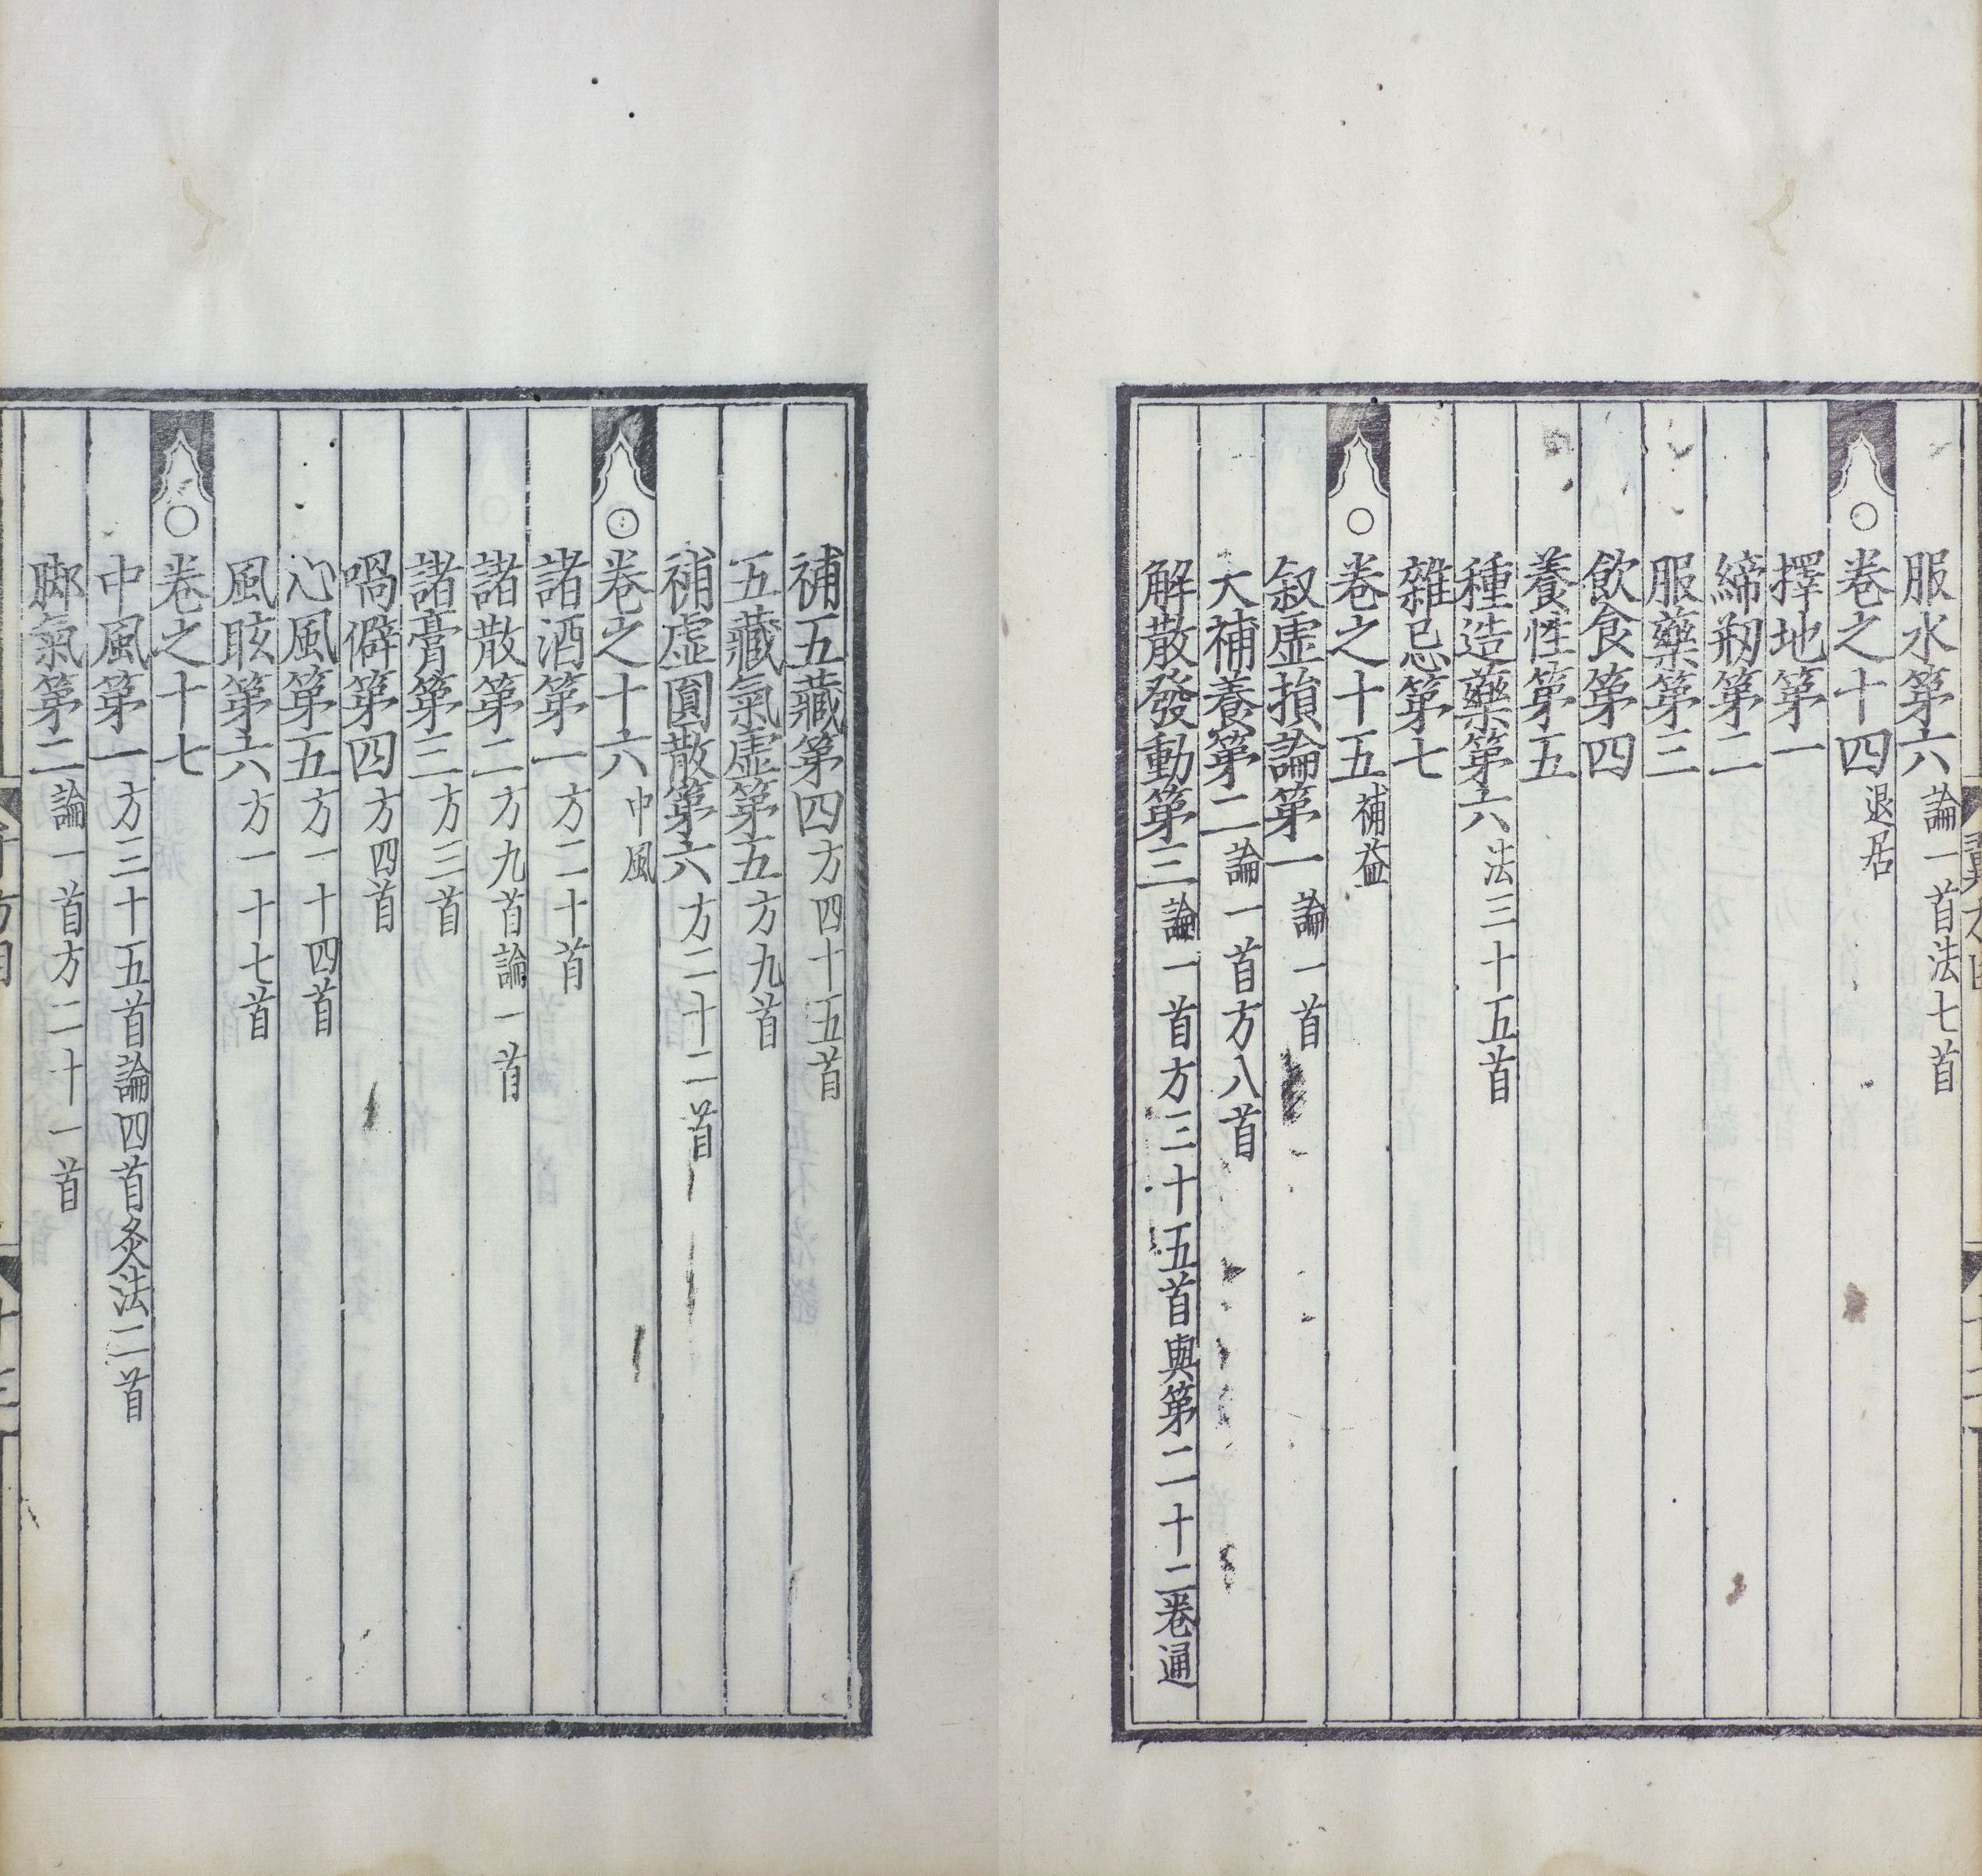 服水第六論一首法七首
○卷之十四退居
擇地第一
締剏第二
服藥第三
飲食第四
養性第五
種造藥第六法三十五首
雜忌第七
○卷之十五補益
叙虛損論第一論一首
大補養第二論一首方八首
解散發動第三論一首方三十五首與第二十二卷通
補五藏第四方四十五首
五藏氣虛第五方九首
補虛圓散第六方二十二首
○卷之十六中風
諸酒第一方二十首
諸散第二方九首論一首
諸膏第三方三首
喎僻第四方四首
心風第五方一十四首
風眩第六方一十七首
○卷之十七
中風第一方三十五首論四首灸法二首
脚氣第二論一首方二十一首